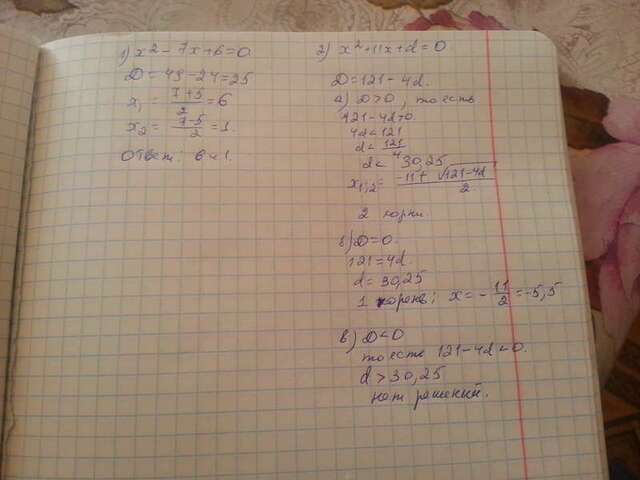 1) x² - 7x + 6 = 0
D = 49 - 24 = 25
x₁ = (7+5)/2 = 6
x₂ = (7-5)/2 = 1.
Ответ: 6 и 1.
2) x² + 11x + d = 0
D = 121 - 4d.
а) D > 0, то есть
121 - 4d > 0
4d < 121
d < 121/4
d < 30,25
x₁,₂ = (-11 ± √(121-4d))/2
2 корни
б) D = 0.
121 = 4d
d = 30,25
1 корень; x = -11/2 = -5,5
в) D < 0
то есть 121 - 4d < 0.
d > 30,25
нет решений.